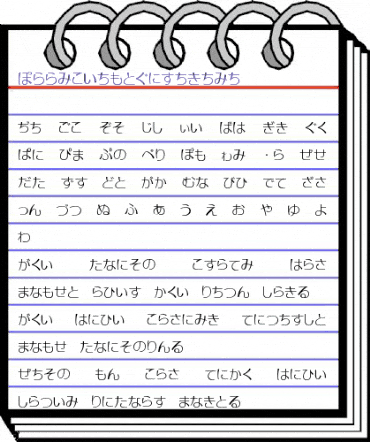 ぽららみこいちもとぐにすちきちみち
ぢち ごこ ぞそ じし ぃい ばは ぎき ぐく
ぱに ぴま ぷの べり ぽも ゎみ ・ら ぜせ
だた ずす どと がか むな びひ でて ざさ
っん づつ ぬ ふ あ う え お や ゆ よ
わ
がくい たなにその こすらてみ はらさ
まなもせと らひいす かくい りちつん しらきる
がくい はにひい こらさにみき てにつちすしと
まなもせ たなにそのりんる
ぜちその もん こらさ てにかく はにひい
しらついみ りにたならす まなきとる